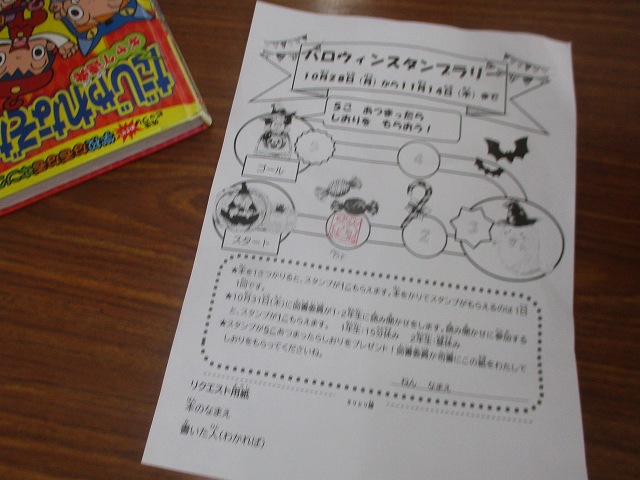 だじゃれなぞ
ハロウィンスタンプラリー
10月28日(月)から11月14日(木)まで
5こ あつまったら
しおりを もらおう!
5
4
ゴール
スタート
2
3
★本を1さつかりると、スタンプが1こもらえます。本をかりてスタンプがもらえるのは1日
1回です。
★10月31日(木)に図書委員が1・2年生に読み聞かせをします。読み聞かせに参加する
と、スタンプが1こもらえます。 1年生:15分休み 2年生:昼休み
★スタンプが5こあつまったらしおりをプレゼント!図書委員か司書にこの紙をわたして
しおりをもらってくださいね。
ねん なまえ
きりとり線
リクエスト用紙
本のなまえ
書いた人(わかれば)